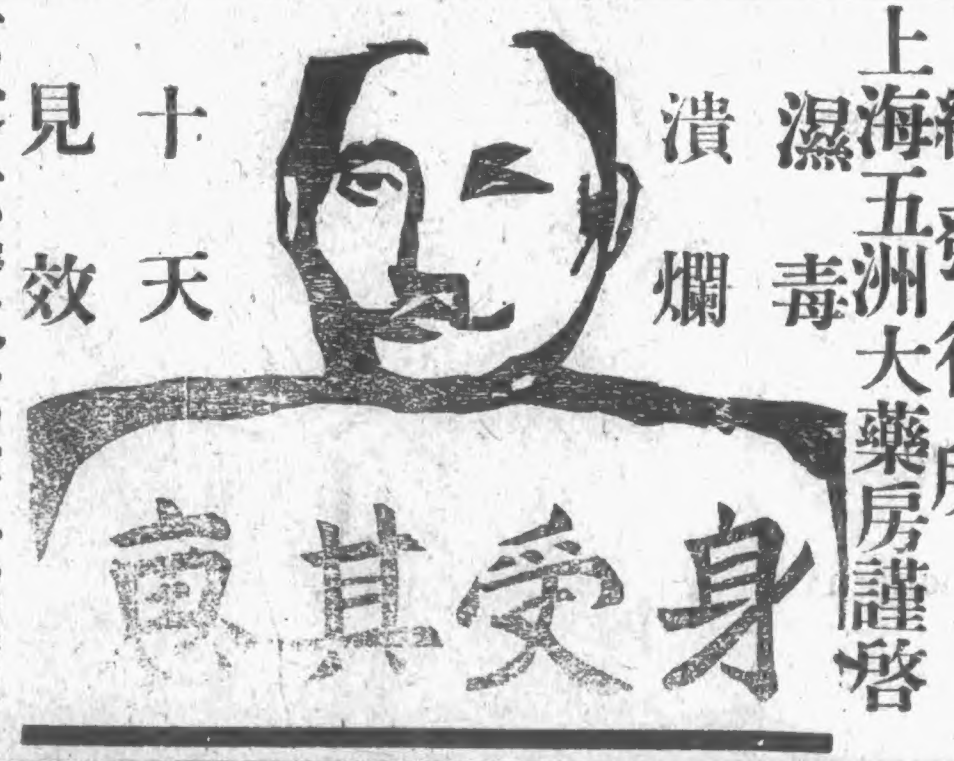 上海五洲大藥房謹啓
濕毒
潰爛
十天
見效
身受其